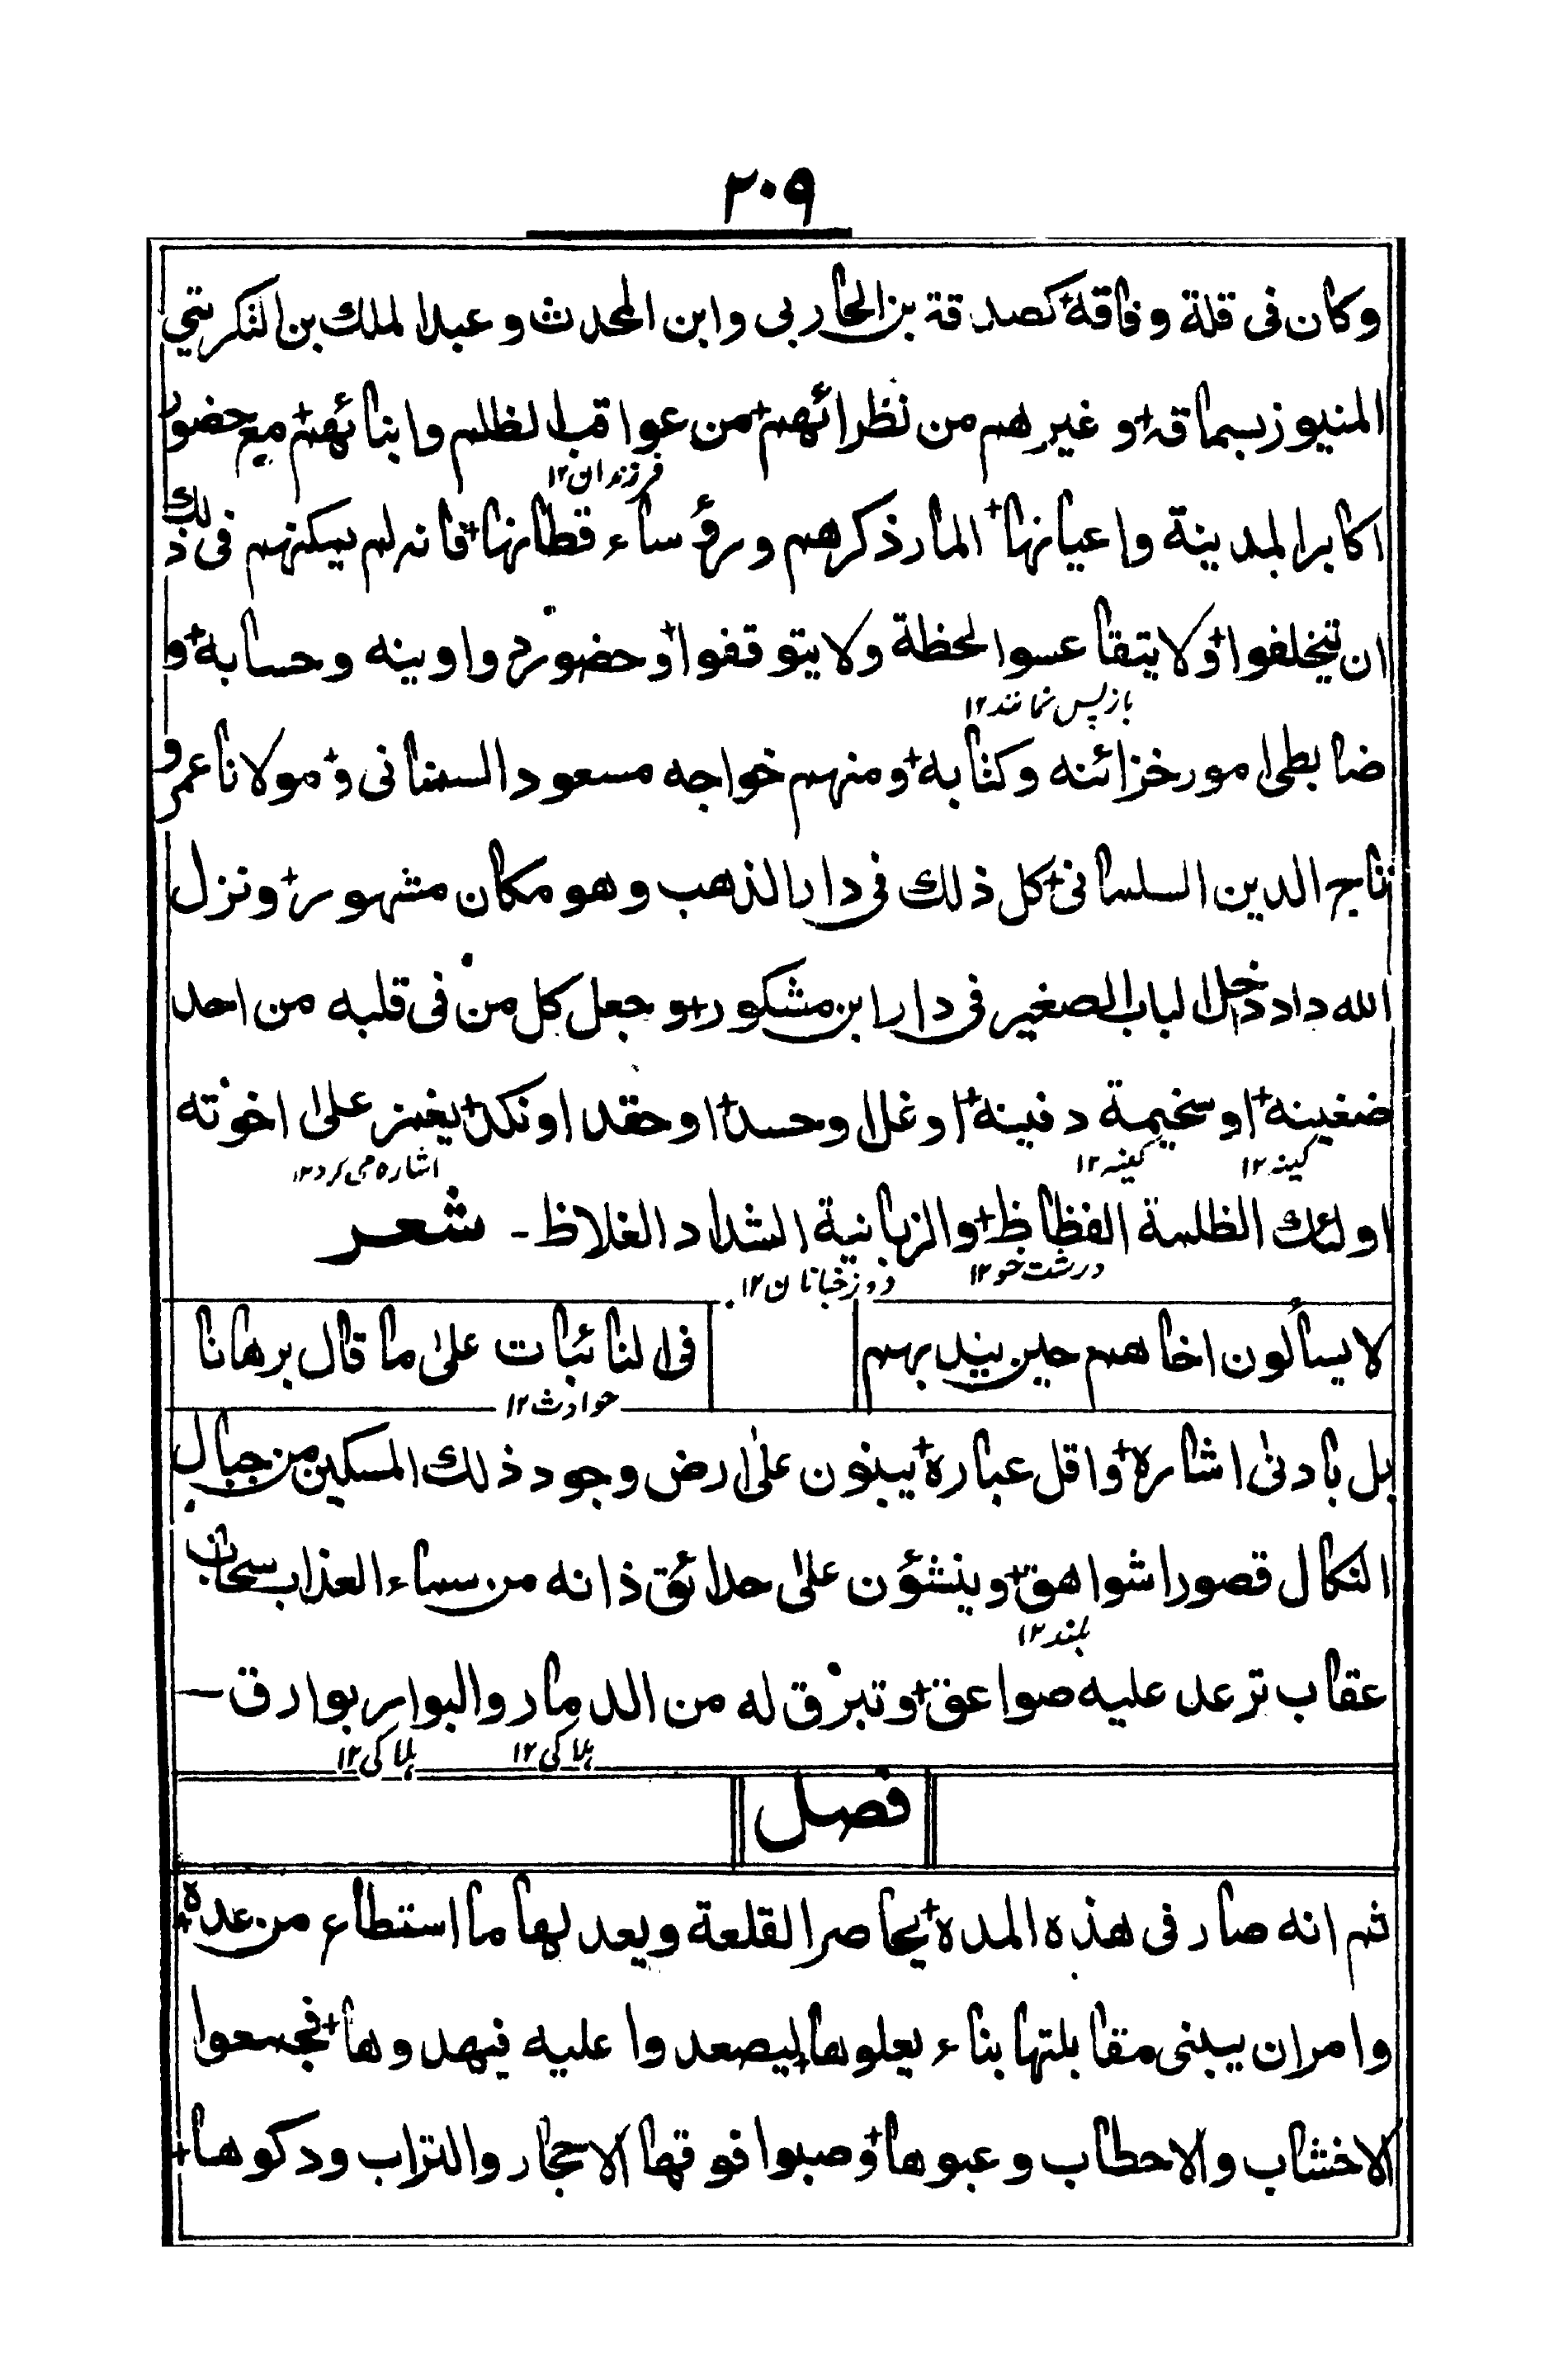 ۲۰۹
وكان فى قلة وفاقة+ كصدقة بن الحاربى وابن المحدث وعبد الملك بن التكريتي
المنبوز بسماقة+ وغيرهم من نظرائهم+ من عواقب الظلم وابنائهم+ مع حضور
فرزندان ۱۲
اكابر المدينة واعيانها+ المار ذكرهم ورؤساء قطانها+ فانه لم يمكنهم فى ذلك
ان يتخلفوا+ ولا يتقاعسوا لحظة ولا يتوقفوا+ وحضور دواوينه وحسابه+ و
باز پس نمانند ۱۲
ضابطى امور خزائنه وكتابه+ ومنهم خواجه مسعود السمنانى و+ مولانا عمر و
تاج الدين السلمانى+ كل ذلك فى دار الذهب وهو مكان مشهور+ ونزل
الله داد داخل الباب الصغير فى دار ابن مشكور+ وجعل كل من فى قلبه من احد
ضغينه+ او سخيمة دفينه+ او غل او حسد+ او حقد او نكد+ يغمز على اخوته
كينه ۱۲ كينه ۱۲ اشاره مى كرد ۱۲
اولئك الظلمة الفظاظ+ والزبانية الشداد الغلاظ - شعر
درشت خو ۱۲ دوزخبانان ۱۲
لا يسألون اخاهم حين يندبهم فى النائبات على ما قال برهانا
حوادث ۱۲
بل بادنى اشارة+ واقل عبارة+ يبنون على ارض وجود ذلك المسكين من جبال
النكال قصورا شواهق+ وينشؤن على حدائق ذاته من سماء العذاب سحاب
بلند ۱۲
عقاب ترعد عليه صواعق+ وتبرق له من الدمار والبوار بوارق –
ہلاکی ۱۲ ہلاکی ۱۲
فصل
ثم انه صار فى هذه المدة+ يحاصر القلعة ويعد لها ما استطاع من عدة+
وامر ان يبنى مقابلتها بناء يعلوها+ ليصعدوا عليه فيهدوها+ فجمعوا
الاخشاب والاحطاب وعبوها+ وصبوا فوقها الاحجار والتراب ودكوها+